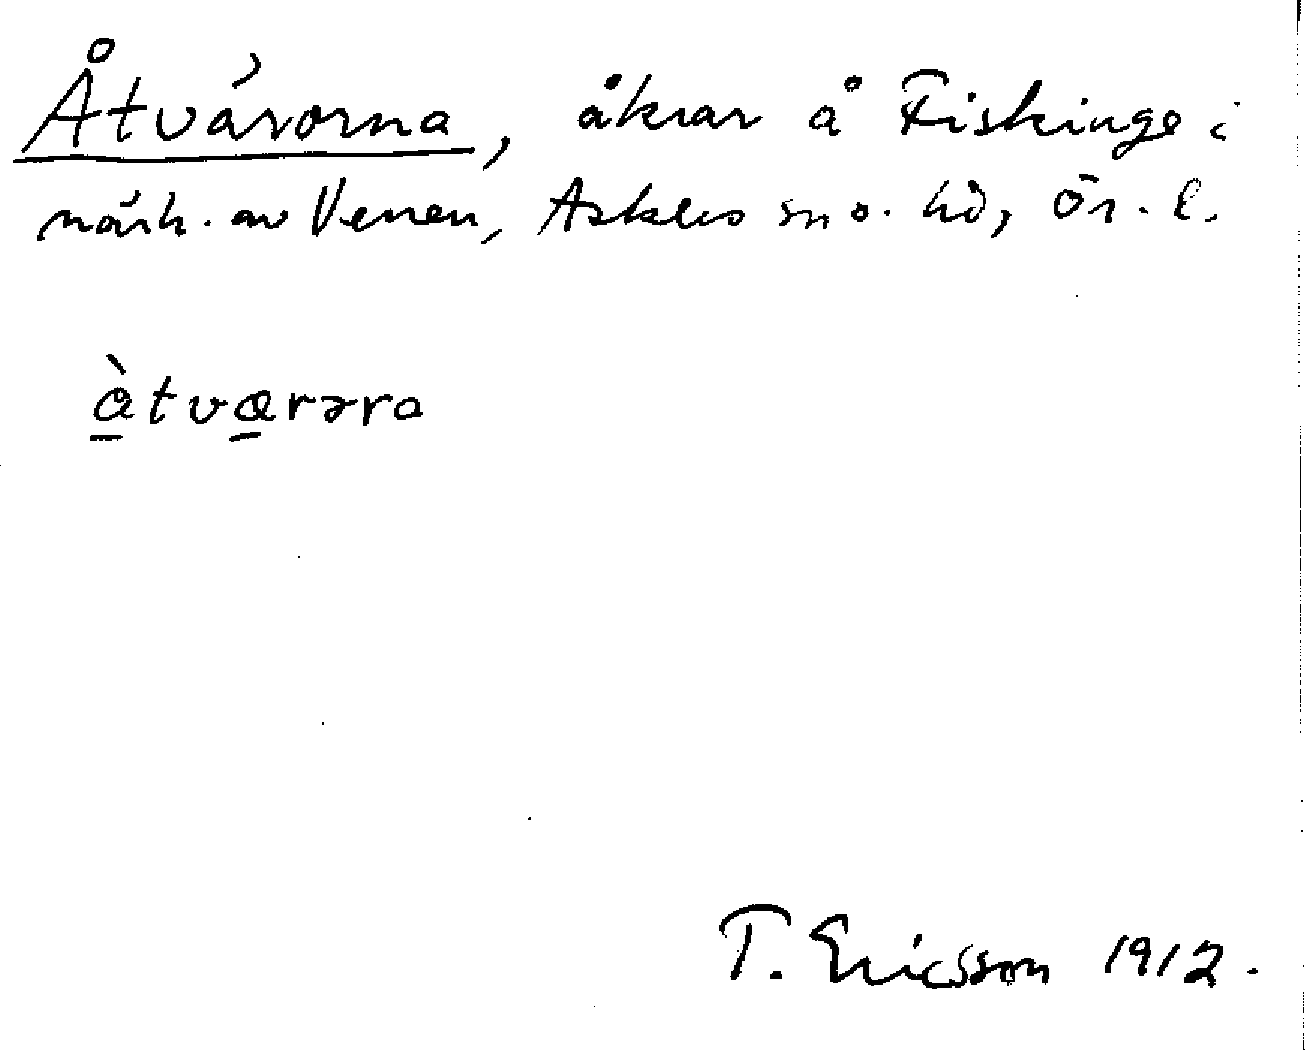 Åtvárorna, åkrar å Fiskinge i
närh. av Venen, Askers sn o. hd, Ör. l.
å̀tvarǝra
T. Ericsson 1912.